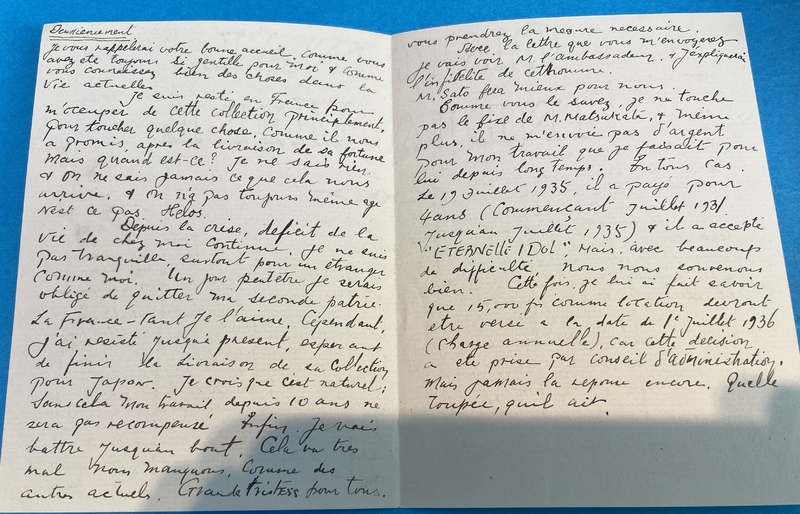 Deuxièmement
Je vous rappelerai votre bonne acceuil. Comme vous
avez éte toujours si gentille pour moi & comme
vous connaissez bien des choses dans la
vie actuelles.
Je suis resté en France pour
m'occuper de cette collection principlement,
pour toucher quelque chose, comme il nous
a promis, après la livraison de sa fortune
mais quand est-ce? Je ne sais rien.
& on ne sais jamais ce que cela nous
arrive. & on n'a pas toujours même age
n'est ce pas. Helas.
Depuis la crise, deficit de la
vie de chez moi continue. Je ne suis
pas tranquille, surtout pour un etranger
comme moi. Un jour peutetre je serais
obligé de quitter ma seconde patrie.
La France - tant je l'aime. Cépendant,
j'ai resisté jusqu'à present, esperant
de finir la livraison de sa Collection
pour Japon. Je crois que c'est naturel;
sans cela mon travail depuis 10 ans ne
sera pas recompensé. Enfin je vais
battre jusqu'au bout. Cela va tres
mal nous manquons, comme des
autres actuels. Grande tristess pour tous.
vous prendrez la mesure necessaire.
Avec la lettre que vous m'envoyerez
je vais voir M. l'ambassadeur. & J'expliquerai
l'infidelité de cet homme.
M. Sato fera mieux pour nous.
Comme vous le savez, je ne touche
pas le fixe de M. Matsukata, & même
plus, il ne m'envoie pas d'argent
pour mon travail que je faisait pour
lui depuis long temps. En tous cas.
Le 19 Juillet 1935, il a payé pour
4 ans (Commençant Juillet 1931
jusqu'au Juillet 1935) & il a accepté
"ETERNELLE IDOL", mais, avec beaucoup
de difficulté. Nous nous souvenons
bien. Cette fois, je lui ai fait savoir
que 15,000 frs comme location devront
etre versé a la date du 1er Juillet 1936
(Charge annuelle), car cette decision
a eté prise par Conseil d'administration.
mais jamais la reponse encore. Quelle
toupée, qu'il ait.